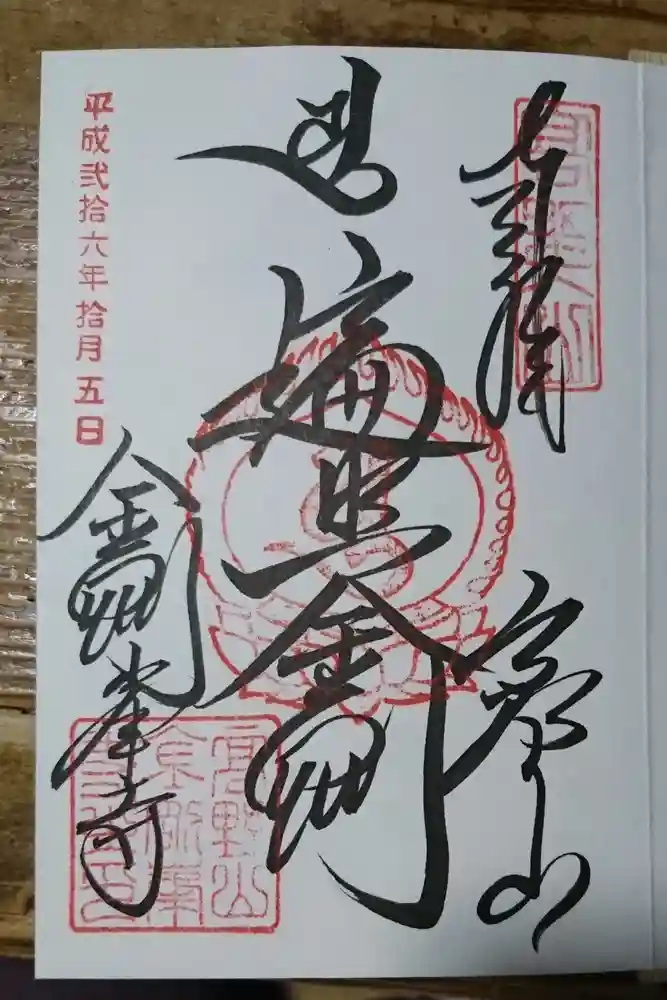 高野山
遍照金剛
平成弐拾六年拾月五日
金剛峯寺
高野山
金剛峯